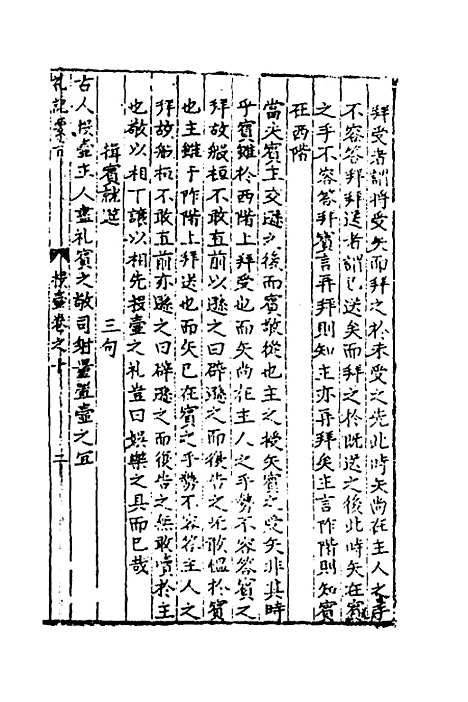 拜受者謂將受矢而拜之於未受之先此時矢尚在主人之手
不容答拜拜送者謂已送矣而拜之於既送之後此時矢在賓
之手不容答拜賓言再拜則知主亦再拜矣主言阼階則知賓
在西階
當矢賓主交遜之後而賓敬從也主之授矢賓之受矢非其時
乎賓雖於西階上拜受也而矢尚在主人之手勢不容答賓之
拜故般桓不敢直前以遜之曰辟遜之而復告之無敢慍於賓
也主雖于阼階上拜送也而矢已在賓之手勢不容答主人之
拜故般桓不敢直前亦遜之曰辟遜之而復告之無敢瀆於主
也敬以相下讓以相先投壺之礼豈曰娛樂之具而已哉
揖賓就筵 三句
古人投壺主人盡礼賓之敬司射量置壺之宜
礼記
投壺卷之十 二